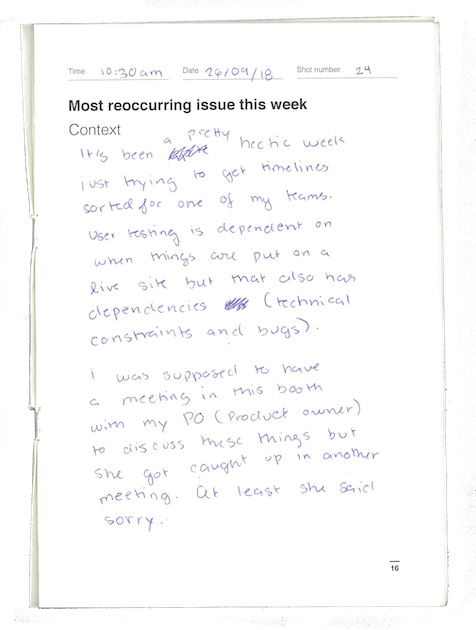 Time 10:30am Date 26/09/18 Shot number 24
Most reoccurring issue this week
Context
It's been a pretty hectic week
just trying to get timelines
sorted for one of my teams.
User testing is dependent on
when things are put on a
live site but that also has
dependencies (technical
constraints and bugs).
I was supposed to have
a meeting in this booth
with my PO (Product owner)
to discuss these things but
she got caught up in another
meeting. At least she said
sorry.
16